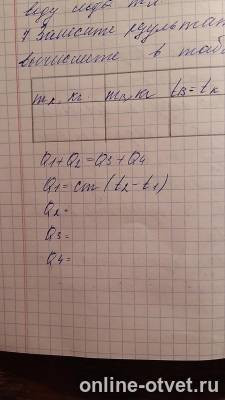 воду
7. Запишите результат
вычислите в таб
mл, кг mв, кг tв = tк
Q1 + Q2 = Q3 + Q4
Q1 = cm (t2 - t1)
Q2 =
Q3 =
Q4 =
online-otvet.ru